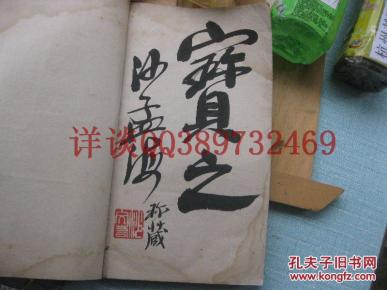 寶之
沙孟海
珍藏
详谈QQ389732469
孔夫子旧书网